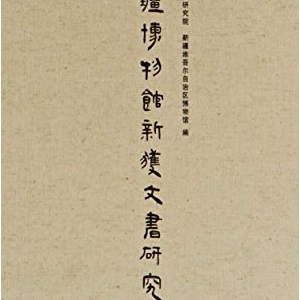 研究院 新疆维吾尔自治区博物馆 编
疆博物館新獲文書研究